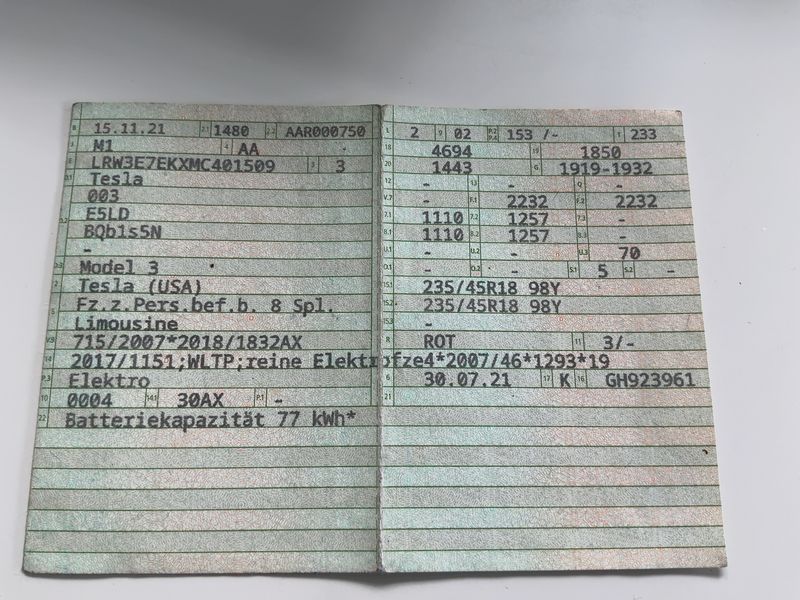 B 15.11.21 2.1 1480 2.2 AAR000750
J M1 4 AA -
E LRW3E7EKXMC401509 3 3
D.1 Tesla
003
D.2 E5LD
BQb1s5N
-
D.3 Model 3
2 Tesla (USA)
5 Fz.z.Pers.bef.b. 8 Spl.
Limousine
V.9 715/2007*2018/1832AX
14 2017/1151;WLTP;reine Elektrofze4*2007/46*1293*19
P.3 Elektro
10 0004 14.1 30AX P.1 -
22 Batteriekapazität 77 kWh*
L 2 9 02 P.2 P.4 153 /- T 233
18 4694 19 1850
20 1443 G 1919-1932
12 - 13 - Q -
V.7 - F.1 2232 F.2 2232
7.1 1110 7.2 1257 7.3 -
8.1 1110 8.2 1257 8.3 -
U.1 - U.2 - U.3 70
O.1 - O.2 - S.1 5 S.2 -
15.1 235/45R18 98Y
15.2 235/45R18 98Y
15.3 -
R ROT 11 3/-
6 30.07.21 17 K 16 GH923961
21